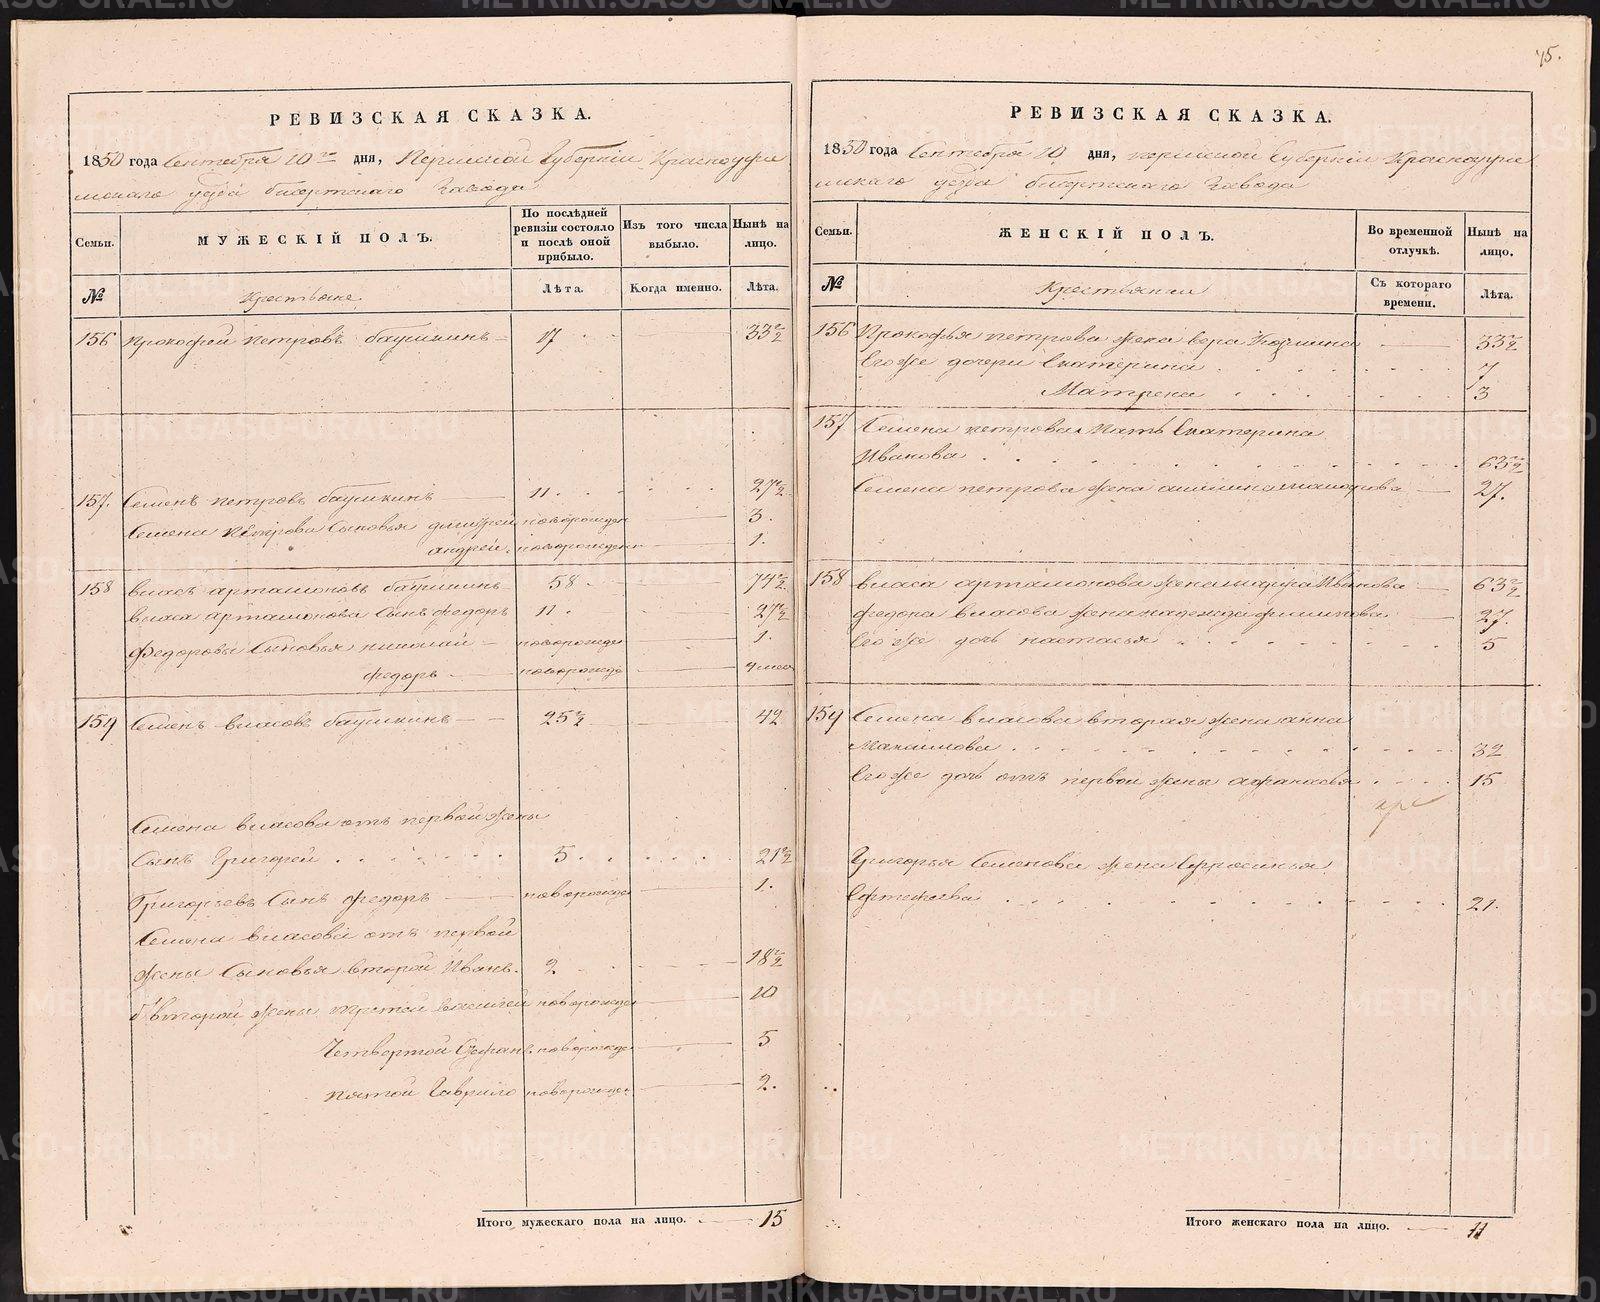 РЕВИЗСКАЯ СКАЗКА.
1850 года Сентября 10го дня, Пермской Губернiи Красноуфи
мскаго уезда бисертскаго Завода
Семьи. МУЖЕСКIЙ ПОЛЪ. По послѣдней ревизiи состояло и послѣ оной прибыло. Изъ того числа выбыло. Нынѣ на лицо.
№ Крестьяне Лѣта. Когда именно. Лѣта.
156 Прокофей Петровъ баушкинъ 17 33 1/2
157. Семенъ петровъ баушкинъ 11. 27 1/2
Семена Петрова Сыновья дмитрей новорожден 3.
андрей. новорожден 1.
158 власъ артамоновъ баушкинъ 58. 74 1/2
власа артамонова Сынъ федоръ 11. 27 1/2
Федоровы Сыновья николай новорожден 1.
федоръ новорожден 4 мес
159 Семенъ власовъ баушкинъ 25 1/2 42
Семена власова отъ первой жены
Сынъ Григорей 5. 21 1/2
Григорьевъ Сынъ федоръ новорожден 1.
Семена власова отъ первой
жены Сыновья второй Иванъ. 2 18 1/2
второй жены третей василей новорожден 10
Четвертой Стефанъ новорожден 5
пятой Гаврило новорожден 2.
Итого мужескаго пола на лицо. 15
75.
РЕВИЗСКАЯ СКАЗКА.
1850 года Сентября 10 дня, пермской Губернiи Красноуфи
мскаго уезда бисертскаго Завода
Семьи. ЖЕНСКIЙ ПОЛЪ. Во временной отлучкѣ. Нынѣ на лицо.
№ Крестьянки Съ котораго времени. Лѣта.
156 Прокофья петрова жена вера 33 1/2
Егоже дочери Екатерина 7
Матрена 3
157 Семена петрова Мать Екатерина
Иванова 63 1/2
Семена петрова жена 27.
158 власа артамонова жена марфа Иванова 63 1/2
федора власова жена надежда филипова 27.
Его же дочь настасья 5
159 Семена власова вторая жена анна
Максимова 32
Его же дочь отъ первой жены афанасья 15
Григорья Семенова жена Ефросинья
21.
Итого женскаго пола на лицо. 11
METRIKI.GASO-URAL.RU